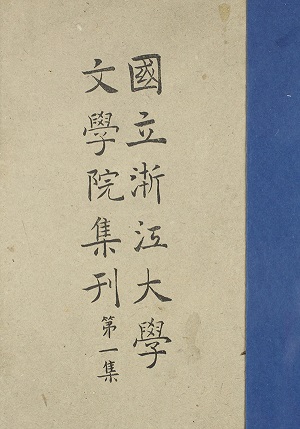 國立浙江大學
文學院集刊
第一集